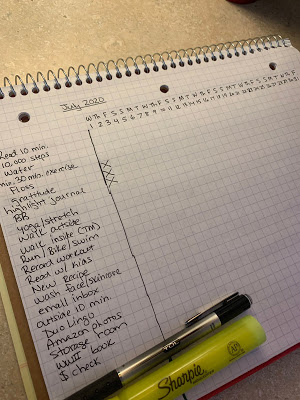 July 2020
W Th F S S M T W Th F S S M T W Th F S S M T W Th F S S M T
1 2 3 4 5 6 7 8 9 10 11 12 13 14 15 16 17 18 19 20 21 22 23 24 25 26 27 28
Read 10 min.
10,000 steps
Water
min. 30 min. exercise
Floss
gratitude
highlight journal
BB
yoga/stretch
walk outside
walk inside (TM)
Run/Bike/Swim
Record workout
Read w/ kids
New Recipe
wash face/skincare
email inbox
outside 10 min.
Duo Lingo
Amazon Photos
Storage room
WWII book
$ check
Sharpie